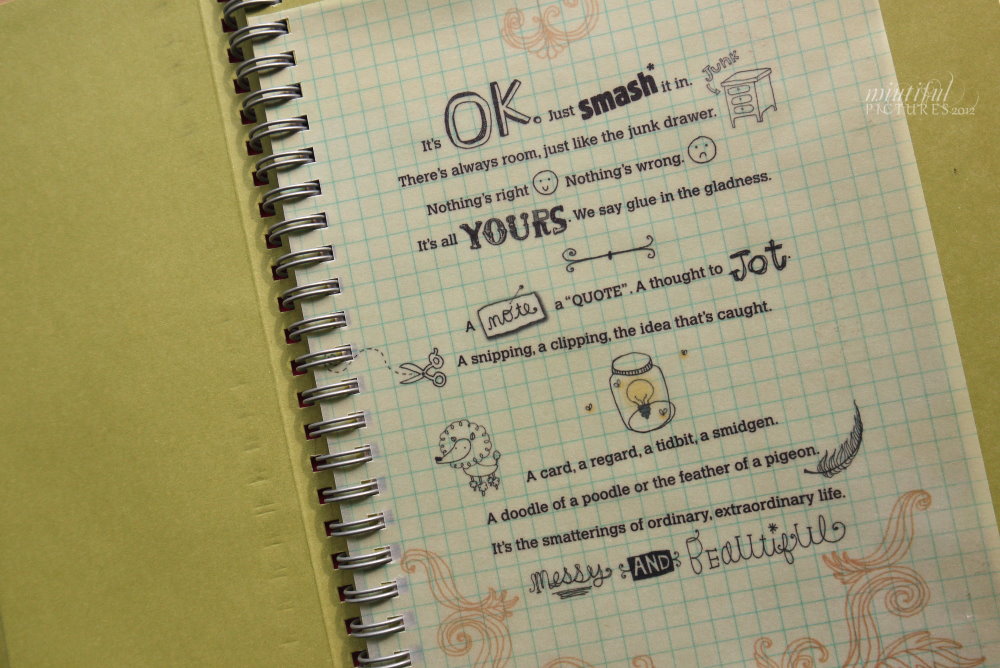 It's OK. Just smash* it in. Junk
There's always room, just like the junk drawer.
Nothing's right Nothing's wrong.
It's all YOURS. We say glue in the gladness.
A note a "QUOTE". A thought to JOT.
A snipping, a clipping, the idea that's caught.
A card, a regard, a tidbit, a smidgen.
A doodle of a poodle or the feather of a pigeon.
It's the smatterings of ordinary, extraordinary life.
messy AND BEAUtifUL
mintiful
PICTURES 2012